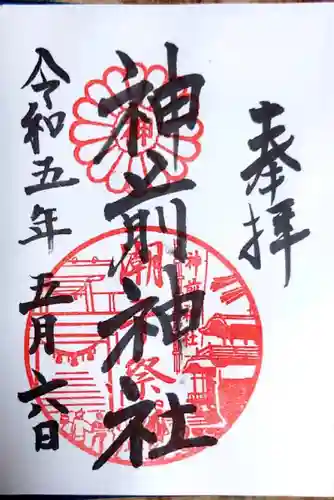 奉拝
神前神社
令和五年五月六日
神
潮
祭
神前神社